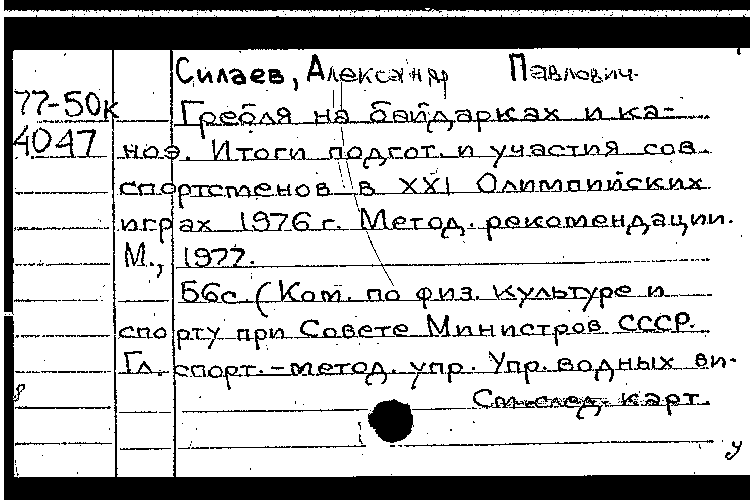 Силаев, Александр Павлович.
77-50к
Гребля на байдарках и ка-
4047
ноэ. Итоги подгот. и участия сов.
спортсменов в XXI Олимпийских
играх 1976 г. Метод. рекомендации.
М., 1977.
56с. (Ком. по физ. культуре и
спорту при Совете Министров СССР.
Гл. спорт.-метод. упр. Упр. водных ви-
См. след. карт.
у